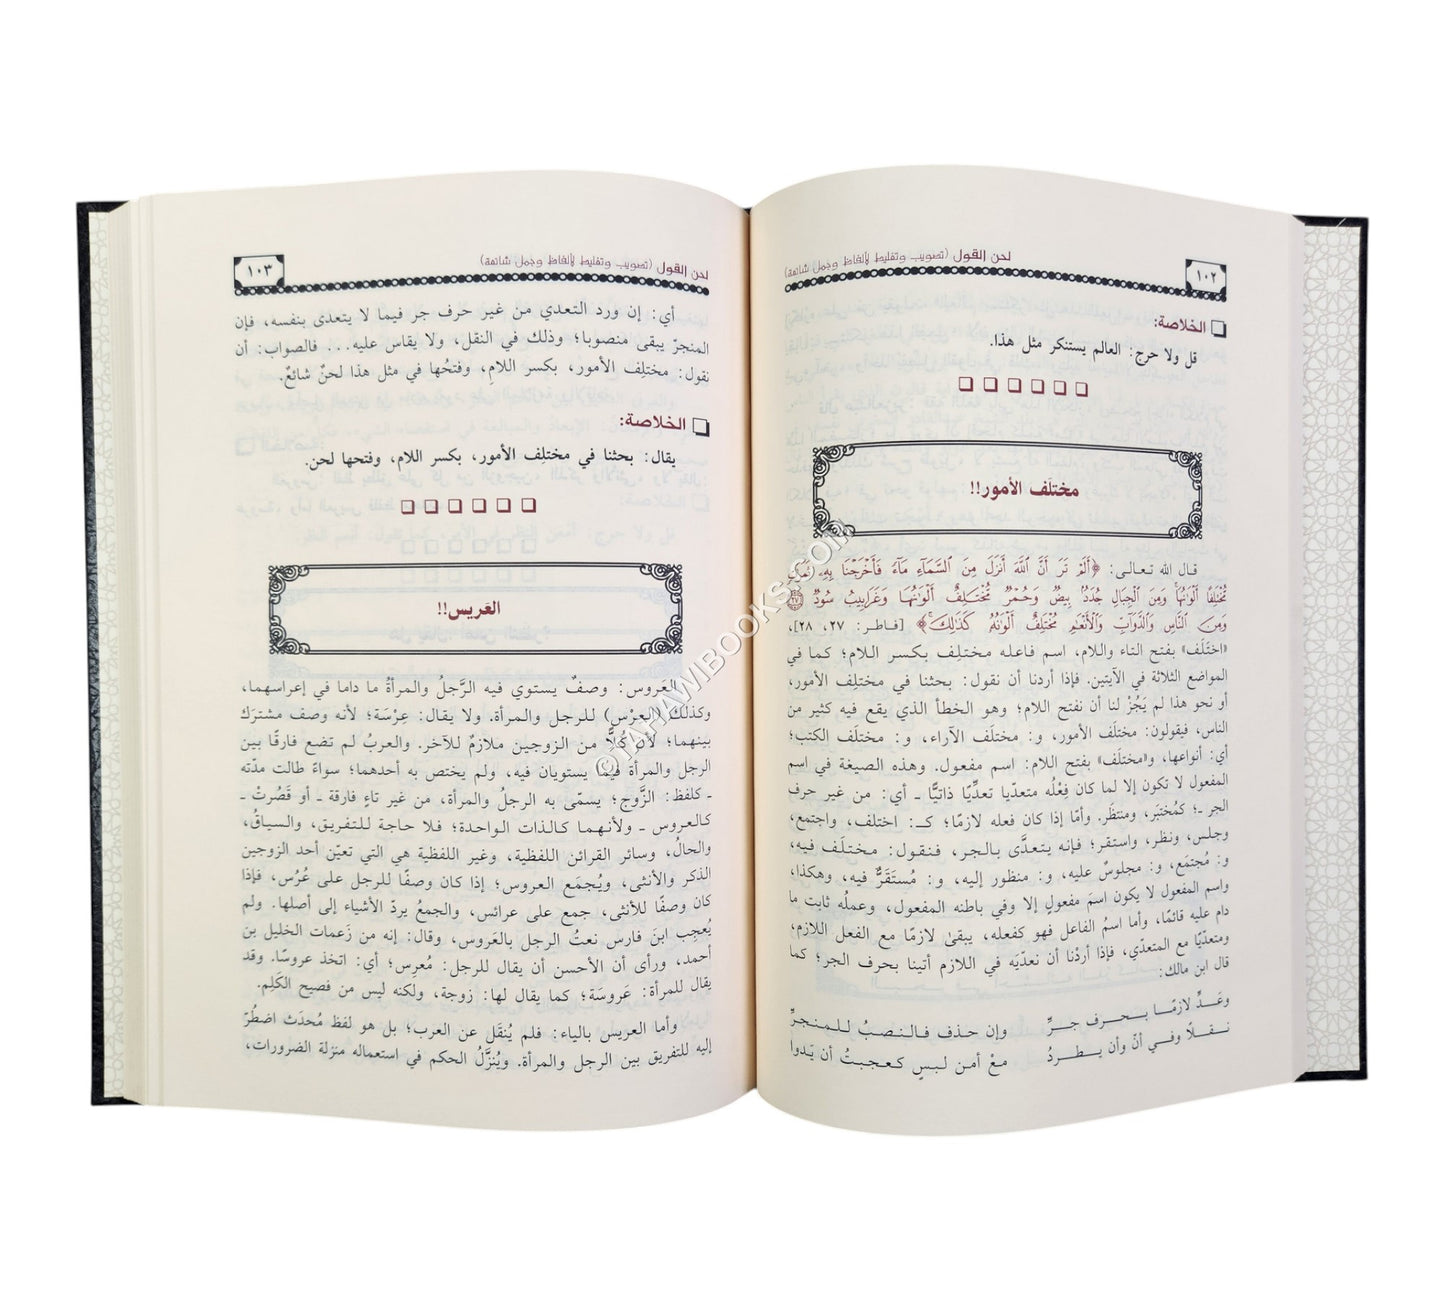 ١٠٢
لحن القول (تصويب وتغليط لألفاظ وجمل شائعة)
الخلاصة:
قل ولا حرج: العالم يستنكر مثل هذا.
مختلَف الأمور!!
قال الله تعالى: ﴿أَلَمْ تَرَ أَنَّ اللَّهَ أَنزَلَ مِنَ السَّمَاءِ مَاءً فَأَخْرَجْنَا بِهِ ثَمَرَاتٍ
مُّخْتَلِفًا أَلْوَانُهَا وَمِنَ الْجِبَالِ جُدَدٌ بِيضٌ وَحُمْرٌ مُّخْتَلِفٌ أَلْوَانُهَا وَغَرَابِيبُ سُودٌ ۝٢٧
وَمِنَ النَّاسِ وَالدَّوَابِّ وَالْأَنْعَامِ مُخْتَلِفٌ أَلْوَانُهُ كَذَلِكَ﴾ [فاطر: ٢٧، ٢٨]،
«اختَلَف» بفتح التاء واللام، اسم فاعله مختلِف بكسر اللام؛ كما في
المواضع الثلاثة في الآيتين. فإذا أردنا أن نقول: بحثنا في مختلِف الأمور،
أو نحو هذا لم يَجُزْ لنا أن نفتح اللام؛ وهو الخطأ الذي يقع فيه كثير من
الناس، فيقولون: مختلَف الأمور، و: مختلَف الآراء، و: مختلَف الكتب؛
أي: أنواعها، و«مختلَف» بفتح اللام: اسم مفعول. وهذه الصيغة في اسم
المفعول لا تكون إلا لما كان فِعْلُه متعديا تعدِّيًا ذاتيًّا ـ أي: من غير حرف
الجر ـ؛ كمُختبَر، ومنتظَر. وأمّا إذا كان فعله لازمًا؛ كـ: اختلف، واجتمع،
وجلس، ونظر، واستقر؛ فإنه يتعدَّى بالجر، فنقول: مختلَف فيه،
و: مُجتمَع، و: مجلوسٌ عليه، و: منظور إليه، و: مُستَقَرٌّ فيه، وهكذا،
واسم المفعول لا يكون اسمَ مفعولٍ إلا وفي باطنه المفعول، وعملُه ثابت ما
دام عليه قائمًا، وأما اسمُ الفاعل فهو كفعله، يبقىٰ لازمًا مع الفعل اللازم،
ومتعديًا مع المتعدّي، فإذا أردْنا أن نعدّيَه في اللازم أتينا بحرف الجر؛ كما
قال ابن مالك:
وعَدِّ لازمًا بـحـرف جـرِّ وإن حذف فالـنـصـبُ لـلـمـنـجـرِّ
نـقـلًا وفـي أنّ وأن يـطـردُ مـعْ أمـن لـبـسٍ كـعـجـبـتُ أن يَـدوا
١٠٣
لحن القول (تصويب وتغليط لألفاظ وجمل شائعة)
أي: إن ورد التعدي من غير حرف جر فيما لا يتعدى بنفسه، فإن
المنجرّ يبقى منصوبا؛ وذلك في النقل، ولا يقاس عليه... فالصواب: أن
نقول: مختلِف الأمور، بكسر اللامِ، وفتحُها في مثل هذا لحنٌ شائعٌ.
الخلاصة:
يقال: بحثنا في مختلِف الأمور، بكسر اللام، وفتحها لحن.
العَريس!!
العَروس: وصفٌ يستوي فيه الرَّجلُ والمرأةُ ما داما في إعراسهما،
وكذلك (العِرْس) للرجل والمرأة. ولا يقال: عِرْسَة؛ لأنه وصف مشترَك
بينهما؛ لأن كُلًّا من الزوجين ملازمٌ للآخر. والعربُ لم تضع فارقًا بين
الرجل والمرأة فيما يستويان فيه، ولم يختص به أحدهما؛ سواءً طالت مدّته
ـ كلفظ: الزَّوج؛ يسمّى به الرجلُ والمرأة، من غير تاءٍ فارقة ـ أو قَصُرتْ ـ
كالعروس ـ ولأنهما كالذات الواحدة؛ فلا حاجة للتفريق، والسياقُ،
والحالُ، وسائر القرائن اللفظية، وغير اللفظية هي التي تعيّن أحد الزوجين
الذكر والأنثى، ويُجمَع العروس؛ إذا كان وصفًا للرجل على عُرُس، فإذا
كان وصفًا للأنثى، جمع على عرائس، والجمعُ يردّ الأشياء إلى أصلها. ولم
يُعجِب ابنَ فارس نعتُ الرجل بالعَروس، وقال: إنه من زَعمات الخليل بن
أحمد، ورأى أن الأحسن أن يقال للرجل: مُعرِس؛ أي: اتخذ عروسًا. وقد
يقال للمرأة: عَروسَة؛ كما يقال لها: زوجة، ولكنه ليس من فصيح الكَلِم.
وأما العريس بالياء: فلم يُنقَل عن العرب؛ بل هو لفظ مُحدَث اضطُرّ
إليه للتفريق بين الرجل والمرأة. ويُنزَّلُ الحكم في استعماله منزلة الضرورات،
©JAWIBOOKS.COM